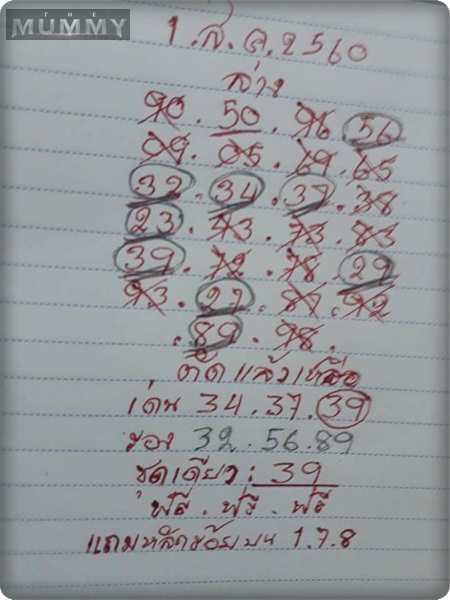 THE
MUMMY
1.ส.ค.2560
ล่าง
90. 50. 96 56
09. 05. 69. 65
32. 34. 37. 38
23. 43. 73. 83
39. 72. 78. 29
93. 27. 87. 92
. 89. 98.
ตัดแล้วเหลือ
เด่น 34.37.39
รอง 32.56.89
ชุดเดียว: 39
ฟรี. ฟรี. ฟรี
แถมหลักร้อยบน 1.7.8